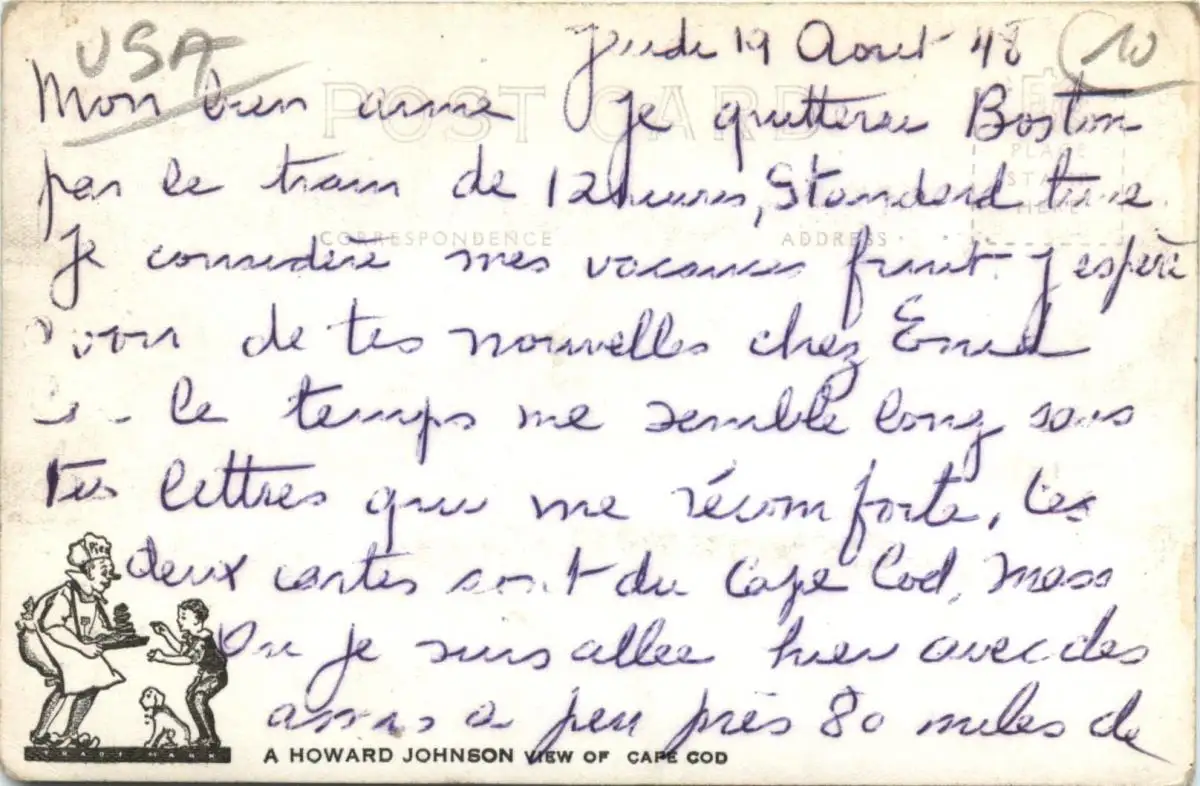 USA
Jeudi 19 Aout 48
10
POST CARD
Mon bien aimé Je quitterai Boston
PLACE
par le train de 12 heures, Standard time.
STAMP
HERE
CORRESPONDENCE
ADDRESS
Je considère mes vacances finit. J espère
avoir de tes nouvelles chez Enid
le temps me semble long sans
tes lettres qui me réconforte, Les
deux cartes sont du Cape Cod, Mass
Pies
Ou je suis allee hier avec des
amis a peu près 80 miles de
TRADE MARK
A HOWARD JOHNSON VIEW OF CAPE COD